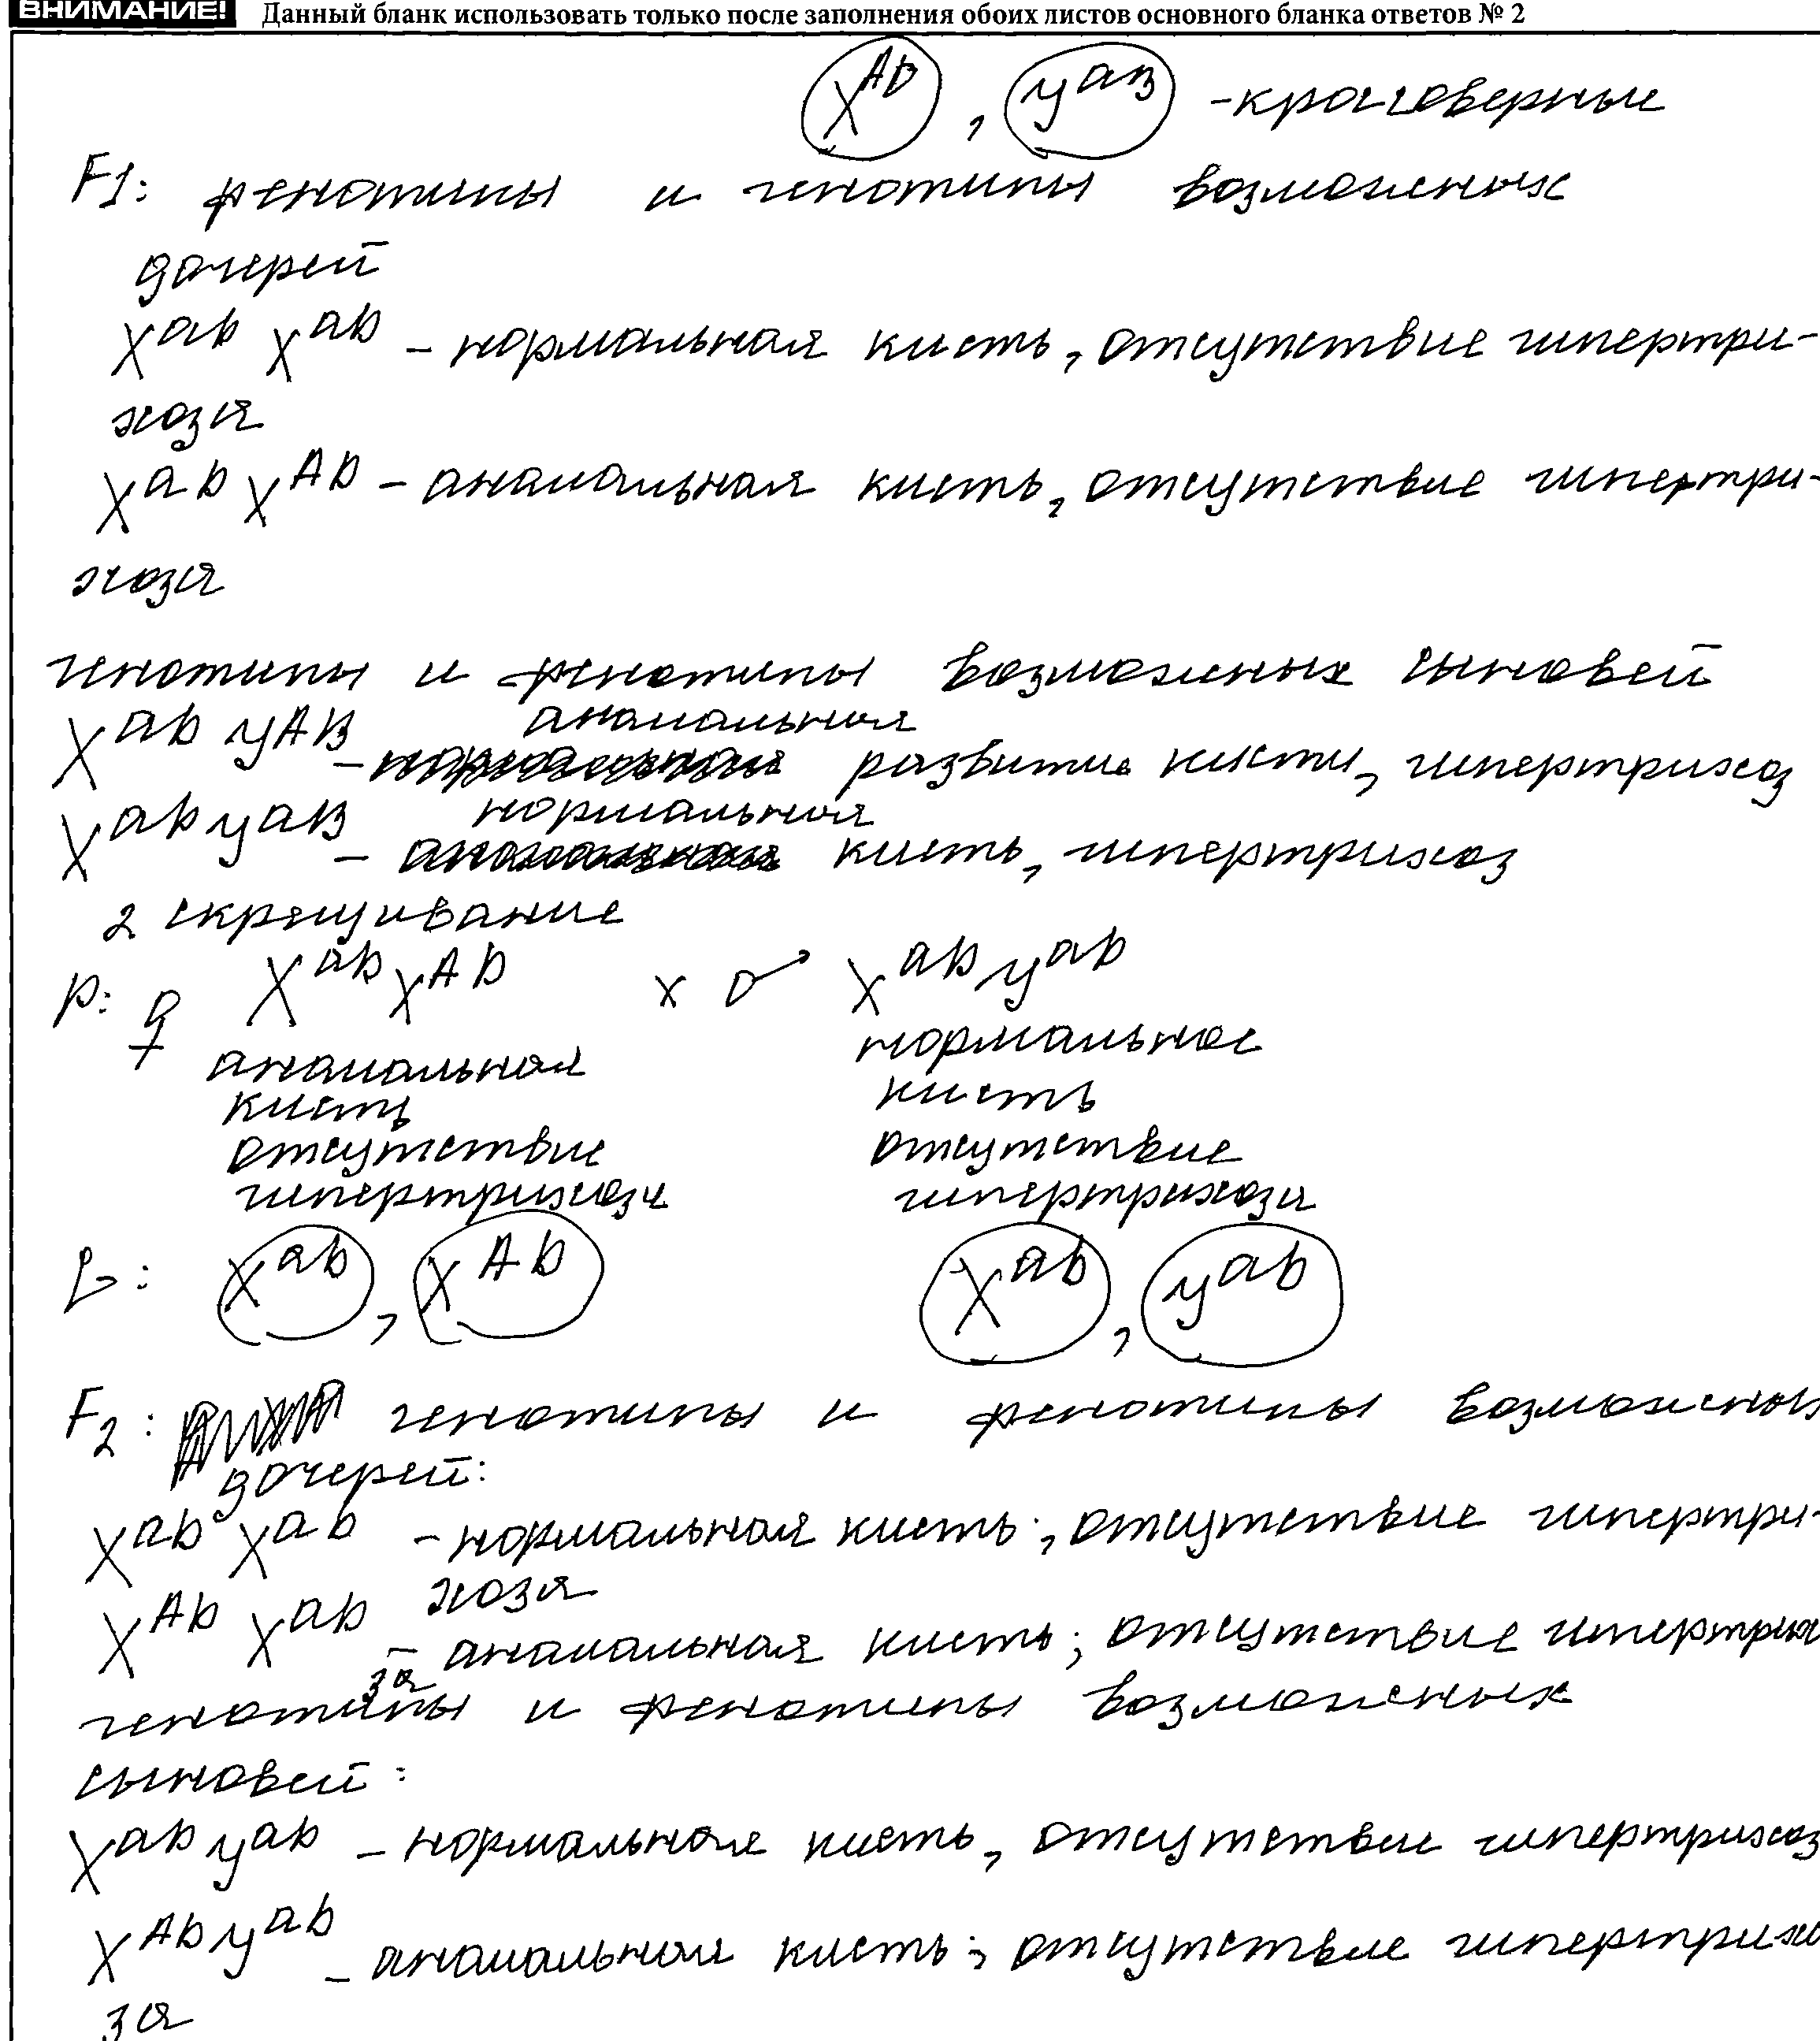 ВНИМАНИЕ! Данный бланк использовать только после заполнения обоих листов основного бланка ответов № 2
X^Ab , y^aB - кроссоверные
F1: фенотипы и генотипы возможных
дочерей
X^ab X^ab - нормальная кисть, отсутствие гипертри-
хоза
X^ab X^Ab - анамальная кисть, отсутствие гипертри-
хоза
генотипы и фенотипы возможных сыновей
анамальная
X^ab y^AB - развитие кисти, гипертрихоз
нормальная
X^ab y^aB - кисть, гипертрихоз
2 скрещивание
p: ♀ X^ab X^Ab x ♂ X^ab y^ab
анамальная нормальное
кисть кисть
отсутствие отсутствие
гипертрихоза гипертрихоза
G: X^ab , X^Ab X^ab , y^ab
F2: генотипы и фенотипы возможных
дочерей:
X^ab X^ab - нормальная кисть; отсутствие гипертри-
хоза
X^Ab X^ab - анамальная кисть; отсутствие гипертрихо
за
генотипы и фенотипы возможных
сыновей:
X^ab y^ab - нормальная кисть, отсутствие гипертрихоз
X^Ab y^ab - анамальная кисть; отсутствие гипертрихо
за